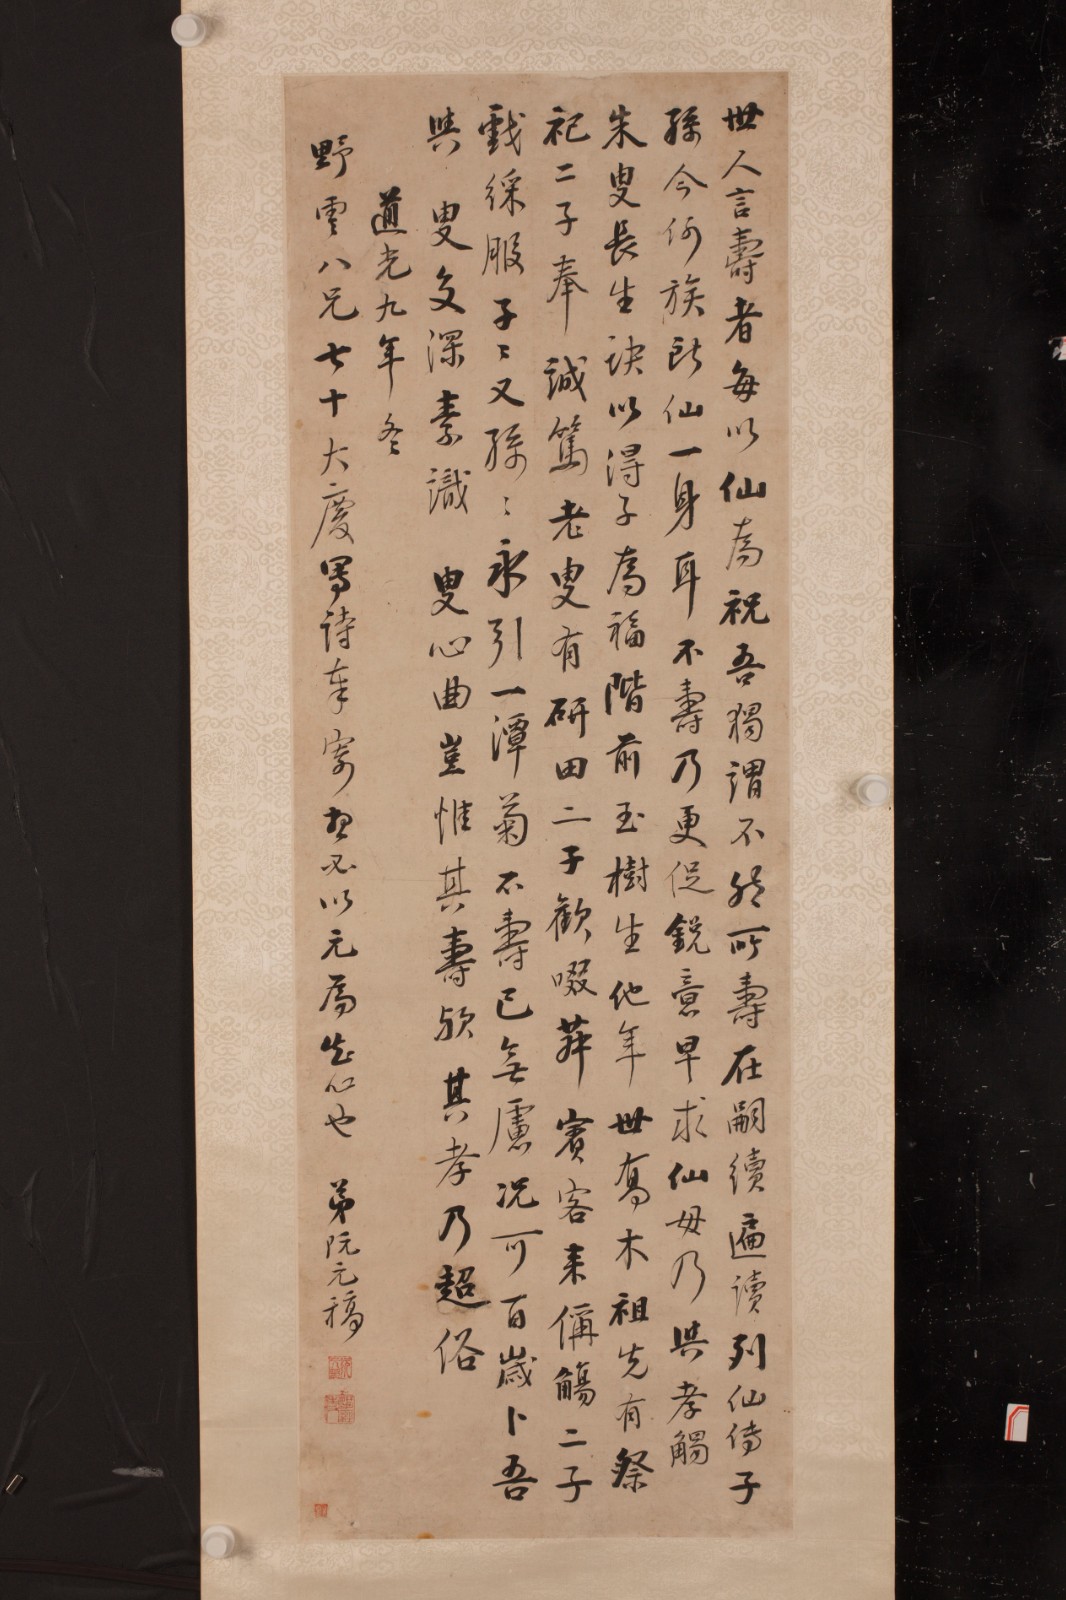 世人言壽者每以仙為祝吾獨謂不然所壽在嗣續遍讀列仙傳子
孫今何族即仙一身耳不壽乃更促銳意早求仙毋乃與孝觸
朱叟長生訣以得子為福階前玉樹生他年世喬木祖先有祭
祀二子奉誠篤老叟有研田二子歡啜菽賓客來稱觴二子
戲綵服子〻又孫〻永引一潭菊不壽已無慮況可百歲卜吾
與叟交深素識叟心曲豈惟其壽欣其孝乃超俗
道光九年冬
野雲八兄七十大慶寫詩奉寄想必以元為知心也 弟阮元稿